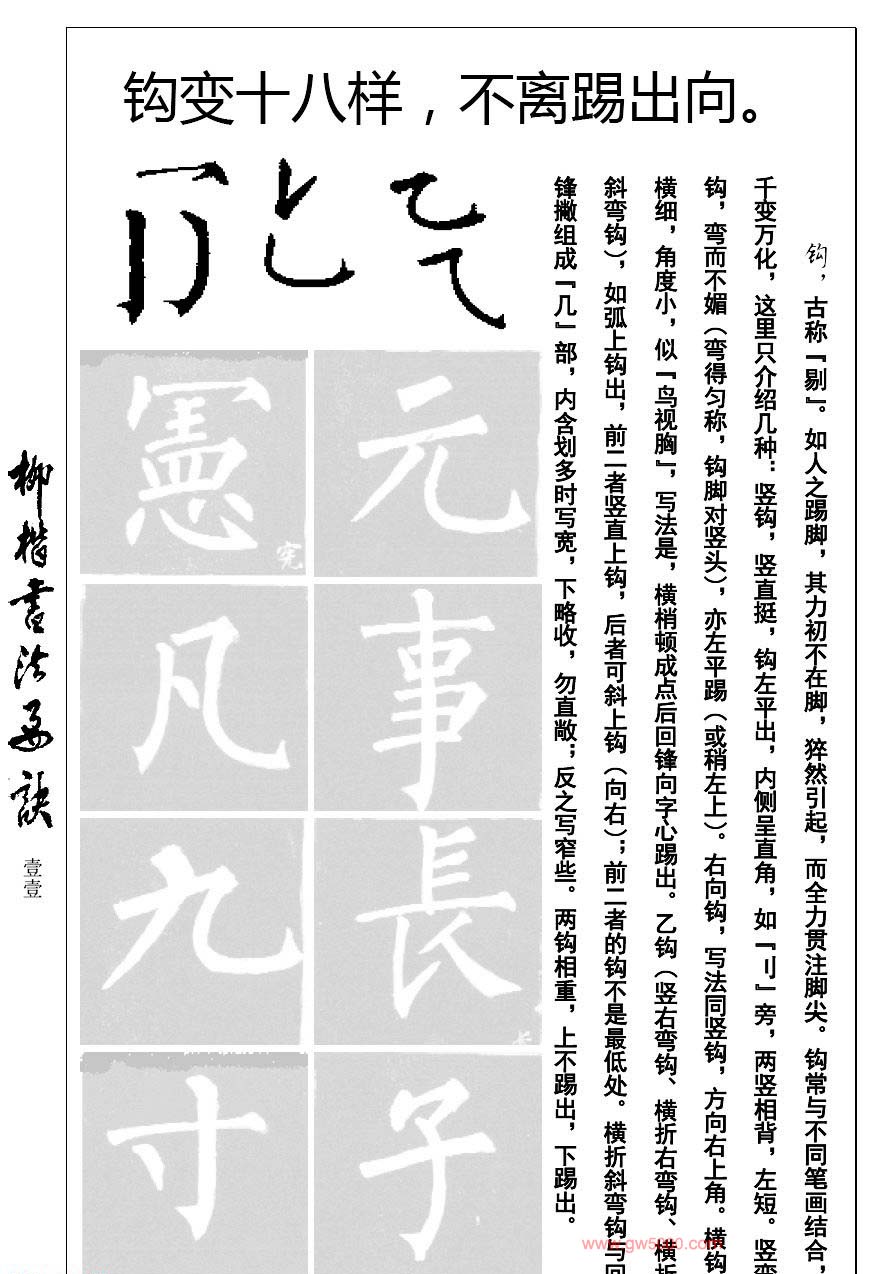 钩变十八样，不离踢出向。
钩，古称『剔』。如人之踢脚，其力初不在脚，猝然引起，而全力贯注脚尖。钩常与不同笔画结合，
千变万化，这里只介绍几种：竖钩，竖直挺，钩左平出，内侧呈直角，如『刂』旁，两竖相背，左短。竖弯
钩，弯而不媚（弯得匀称，钩脚对竖头），亦左平踢（或稍左上）。右向钩，写法同竖钩，方向右上角。横钩
横细，角度小，似『鸟视胸』，写法是，横梢顿成点后回锋向字心踢出。乙钩（竖右弯钩、横折右弯钩、横折
斜弯钩），如弧上钩出，前二者竖直上钩，后者可斜上钩（向右）；前二者的钩不是最低处。横折斜弯钩与回
锋撇组成『几』部，内含划多时写宽，下略收，勿直敞；反之写窄些。两钩相重，上不踢出，下踢出。
元
憲
宪
事
凡
長
长
九
子
寸
柳楷书法要诀
壹壹
www.gw5000.com